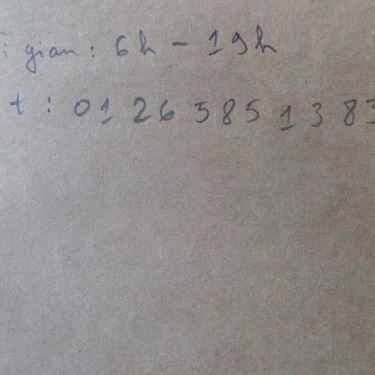 i gian: 6h - 19h
t: 01 26 585 1 3 83